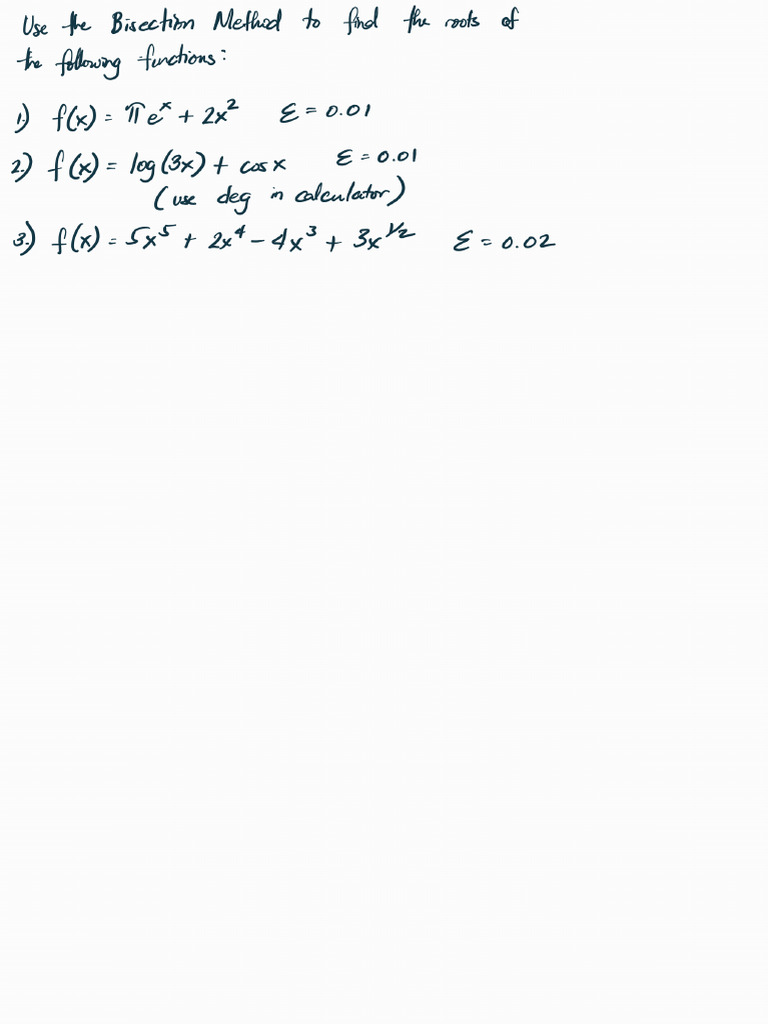 Use the Bisection Method to find the roots of
the following functions:
1.) f(x) = πeˣ + 2x² ε = 0.01
2.) f(x) = log(3x) + cos x ε = 0.01
(use deg in calculator)
3.) f(x) = 5x⁵ + 2x⁴ - 4x³ + 3x^½ ε = 0.02